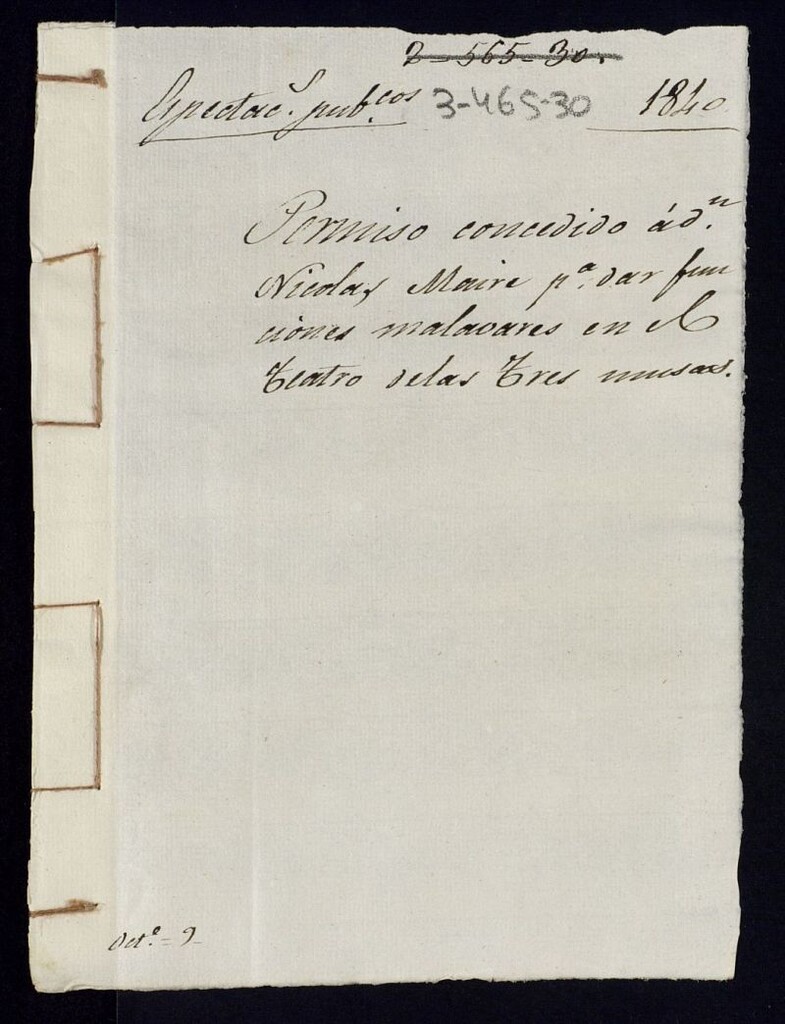 2-565-30.
Espectac.s pub.cos 3-465-30 1840
Permiso concedido á d.n
Nicolas Maire p.a dar fun
ciones malavares en el
Teatro delas Tres musas.
Oct.e = 9